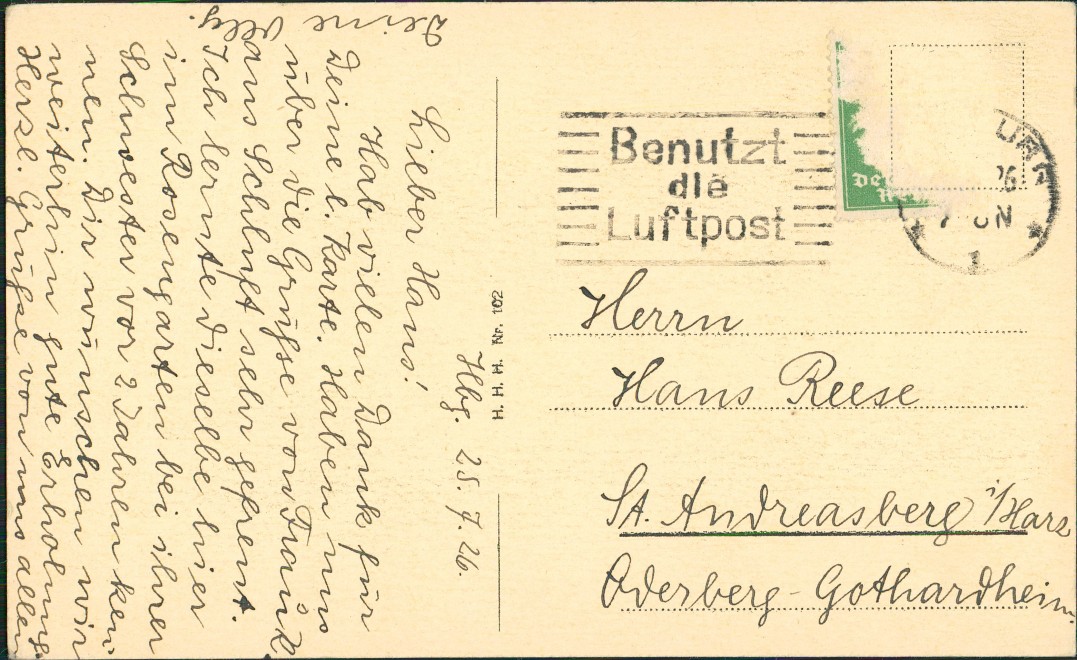 Hbg. 25.7.26.
Lieber Hans!
Hab vielen Dank für
Deine l. Karte. Haben uns
über die Grüsse von Frau K.
aus Schluft sehr gefreut.
Ich lernte dieselbe hier
im Rosengarten bei ihrer
Schwester vor 2 Jahren ken-
nen. Dir wünschen wir
weiterhin gute Erholung.
Herzl. Grüsse von uns allen
Deine
H. H. H. Nr. 102
Benutzt
die
Luftpost
26
N
1
Herrn
Hans Reese
St. Andreasberg i/Harz
Oderberg-Gothardheim.